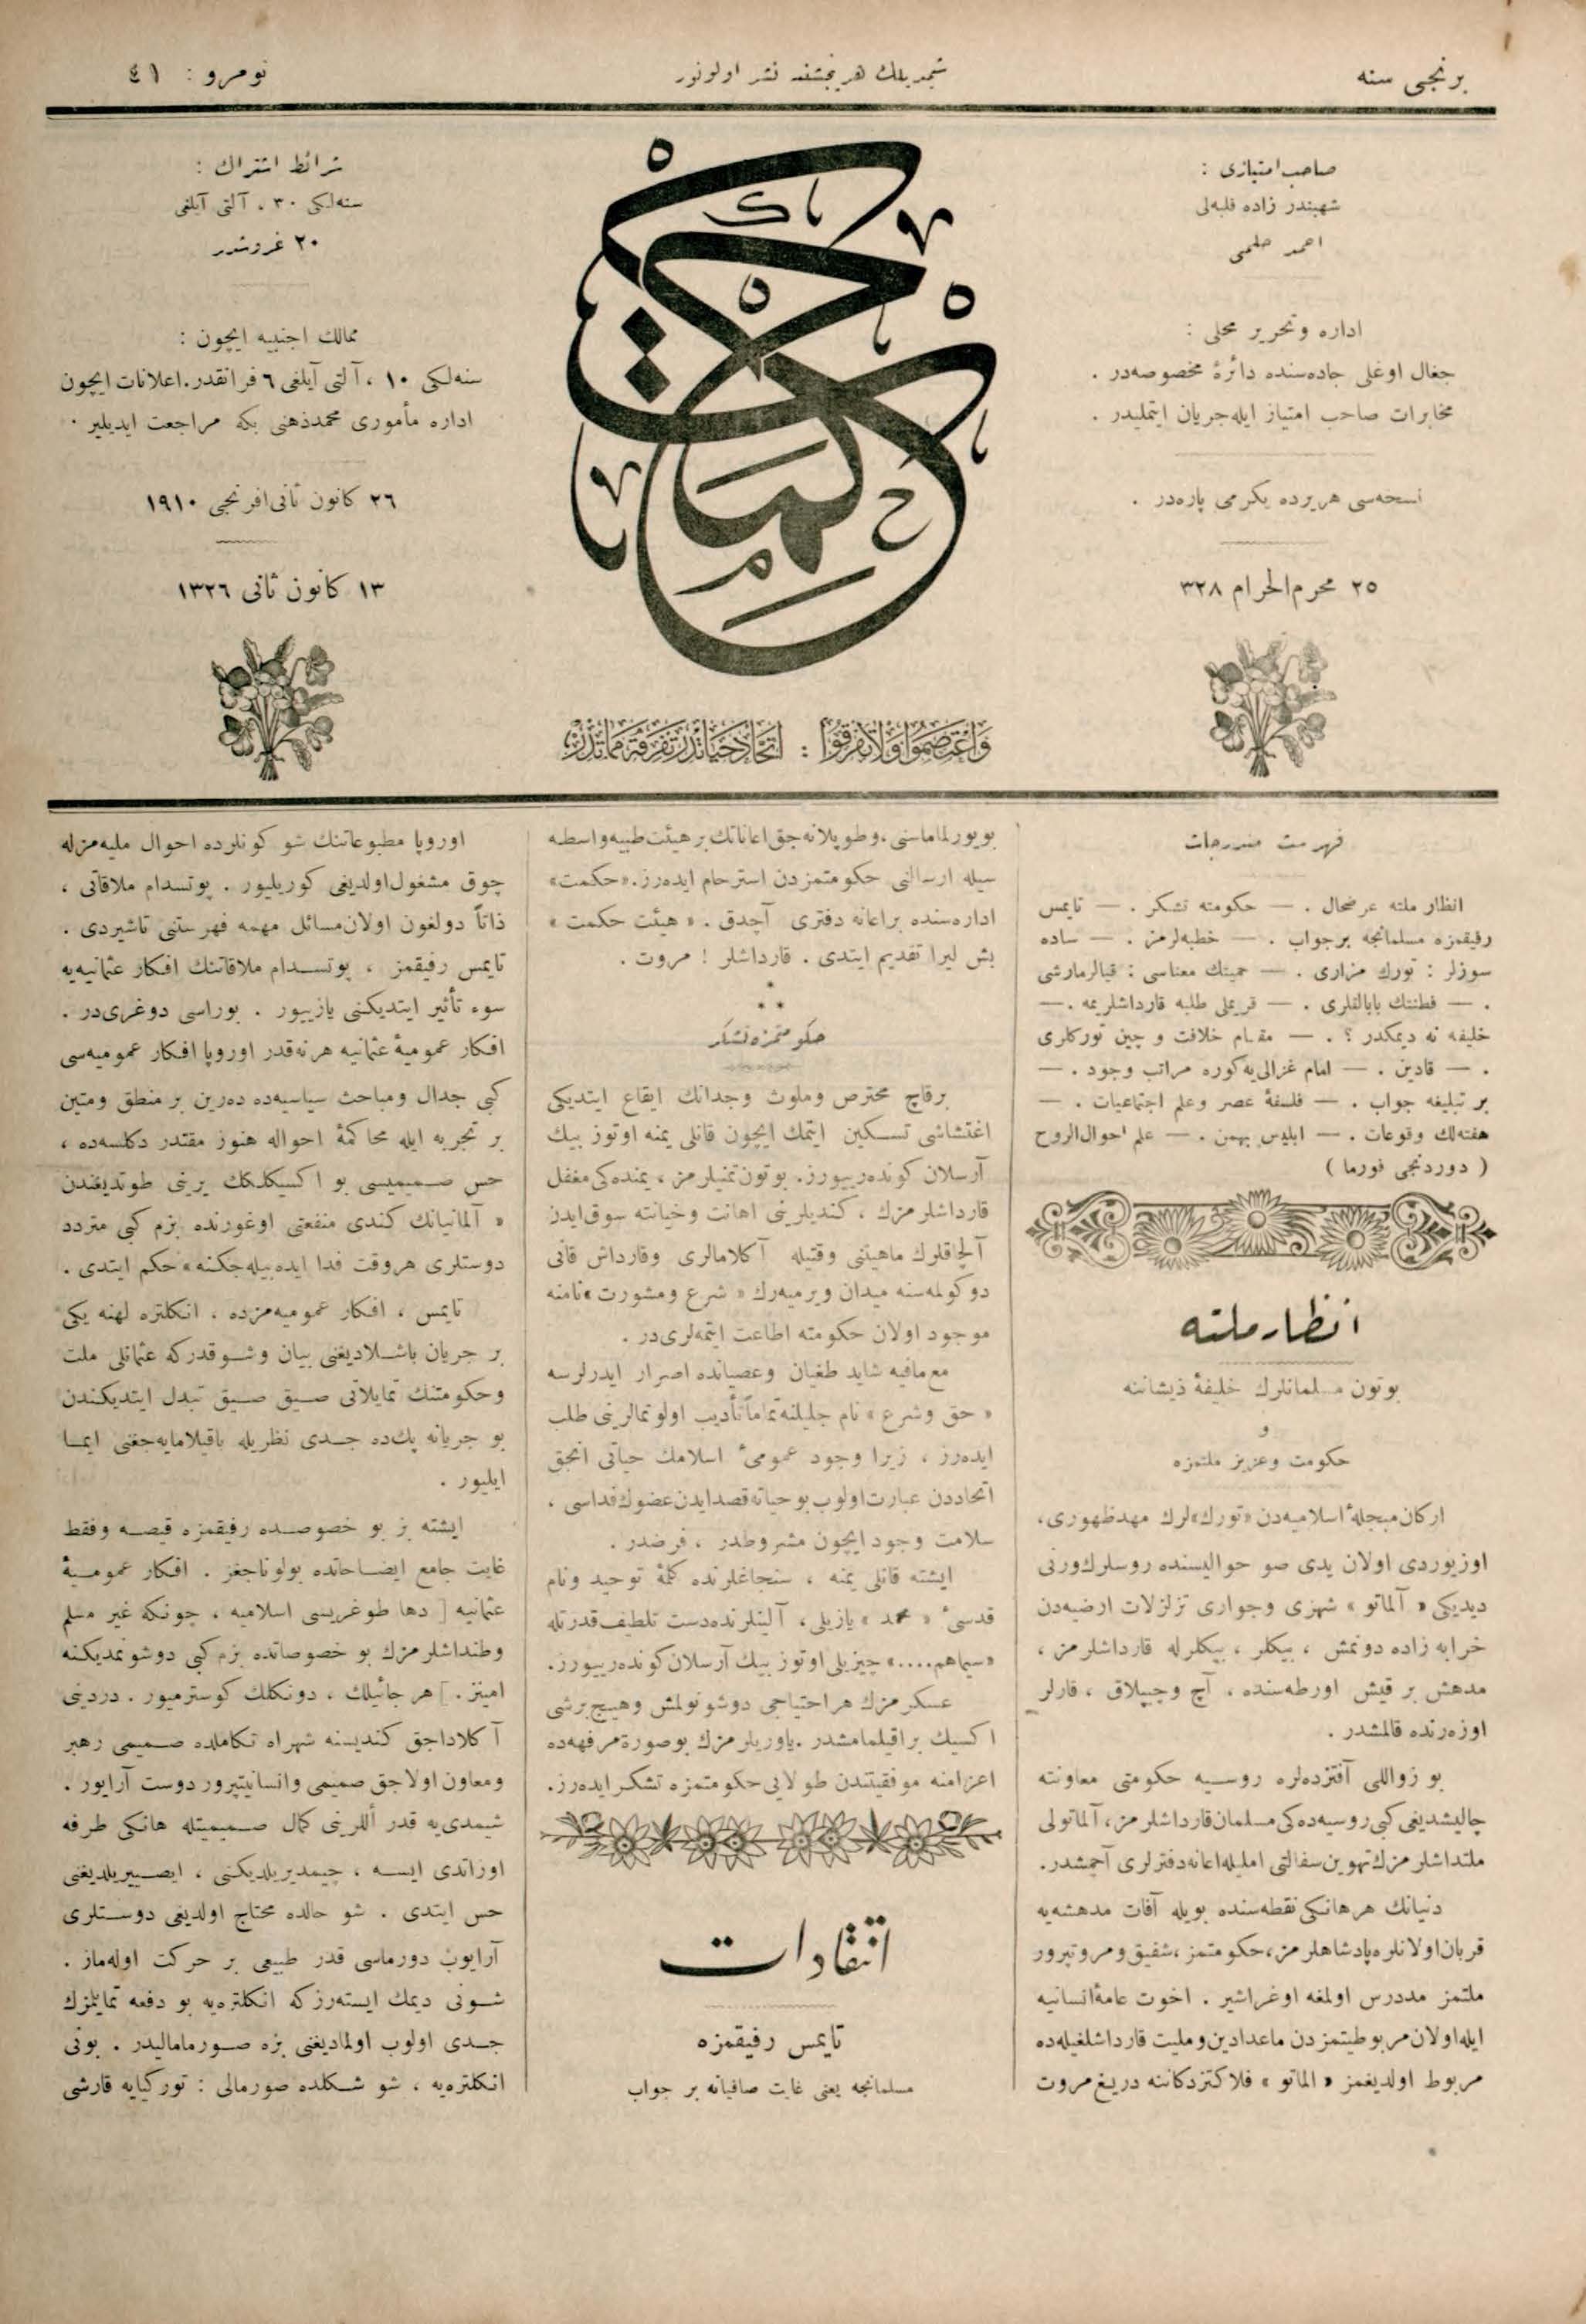 برنجی سنه
شیمدیلك هر پنجشنبه نشر اولونور
نومرو : ٤١
صاحب امتیازی :
شهبندر زاده فلبه‌لی
احمد حلمی
اداره وتحریر محلی :
جغال اوغلی جاده‌سنده دائرهٔ مخصوصه‌در .
مخابرات صاحب امتیاز ایله جریان ایتملیدر .
نسخه‌سی هریرده یکرمی پاره‌در .
٢٥ محرم الحرام ٣٢٨
حکمت
واعتصموا ولاتفرقوا : اتحاد حیاتدر تفرقه مماتدر
شرائط اشتراك :
سنه‌لکی ٣٠ ، آلتی آیلغی
٢٠ غروشدر
ممالك اجنبیه ایچون :
سنه‌لکی ١٠ ، آلتی آیلغی ٦ فرانقدر. اعلانات ایچون
اداره مأموری محمدذهنی بکه مراجعت ایدیلیر .
٢٦ کانون ثانی افرنجی ١٩١٠
١٣ کانون ثانی ١٣٢٦
فهرست مندرجات
انظار ملته عرضحال . — حکومته تشکر . — تایمس
رفیقمزه مسلمانجه برجواب . — خطبه‌لرمز . — ساده
سوزلر : تورك مزاری . — حمیتك معناسی : قیالرمارشی
. — فطنتك بابالقلری . — قریملی طلبه قارداشلریمه . —
خلیفه نه دیمکدر ؟ . — مقام خلافت و چین تورکلری
. — قادین . — امام غزالی‌یه کوره مراتب وجود . —
بر تبلیغه جواب . — فلسفهٔ عصر وعلم اجتماعیات . —
هفته‌لك وقوعات . — ابلیس بهمن . — علم احوال الروح
( دوردنجی فورما )
انظار ملته
بوتون مسلمانلرك خلیفهٔ ذیشاننه
و
حکومت وعزیز ملتمزه
ارکان مبجلهٔ اسلامیه‌دن «تورك»لرك مهدظهوری،
اوزیوردی اولان یدی صو حوالیسنده روسلرك ورنی
دیدیکی « آلماتو » شهری وجواری تزلزلات ارضیه‌دن
خرابه زاده دونمش ، بیکلر ، بیکلرله قارداشلرمز ،
مدهش بر قیش اورطه‌سنده ، آچ وچیپلاق ، قارلر
اوزه‌رنده قالمشدر .
بو زواللی آفتزده‌لره روسیه حکومتی معاونته
چالیشدیغی کبی روسیه‌ده‌کی مسلمان قارداشلرمز، آلماتولی
ملتداشلرمزك تهوین سفالتی املیله اعانه دفترلری آچمشدر.
دنیانك هر هانکی نقطه‌سنده بویله آفات مدهشه‌یه
قربان اولانلره پادشاهلرمز، حکومتمز، شفیق ومروتپرور
ملتمز مددرس اولمغه اوغراشیر . اخوت عامهٔ انسانیه
ایله اولان مربوطیتمزدن ماعدا دین وملیت قارداشلغیله‌ده
مربوط اولدیغمز « الماتو » فلاکتزدکاننه دریغ مروت
بویورلماماسنی، وطوپلانه‌جق اعاناتك بر هیئت طبیه واسطه
سیله ارسالنی حکومتمزدن استرحام ایده‌رز. «حکمت»
اداره‌سنده براعانه دفتری آچدق . « هیئت حکمت »
بش لیرا تقدیم ایتدی . قارداشلر ! مروت .
*
* *
حکومتمزه تشکر
برقاچ محترص وملوث وجدانك ایقاع ایتدیکی
اغتشاشی تسکین ایتمك ایچون قانلی یمنه اوتوز بیك
آرسلان کونده‌رییورز. بوتون تمنیلرمز ، یمنده‌کی مغفل
قارداشلرمزك ، کندیلرینی اهانت وخیانته سوق ایدن
آلچاقلرك ماهیتنی وقتیله آکلامالری وقارداش قانی
دوکولمه‌سنه میدان ویرمیه‌رك « شرع ومشورت » نامنه
موجود اولان حکومته اطاعت ایتمه‌لری‌در .
مع مافیه شاید طغیان وعصیانده اصرار ایدرلرسه
« حق وشرع » نام جلیلنه تماماً تأدیب اولونمالرینی طلب
ایده‌رز ، زیرا وجود عمومیٔ اسلامك حیاتی انجق
اتحاددن عبارت اولوب بوحیاته قصدایدن عضوك فداسی ،
سلامت وجود ایچون مشروطدر ، فرضدر .
ایشته قانلی یمنه ، سنجاغلرنده کلمهٔ توحید ونام
قدسیٔ « محمد » یازیلی ، آلینلرنده دست تلطیف قدرتله
«سیماهم....» چیزیلی اوتوز بیك آرسلان کونده‌رییورز.
عسکرمزك هر احتیاجی دوشونولمش وهیچ برشی
اکسیك براقیلمامشدر . یاوریلرمزك بوصورة مرفهه‌ده
اعزامنه موفقیتندن طولایی حکومتمزه تشکر ایده‌رز.
انتقادات
تایمس رفیقمزه
مسلمانجه یعنی غایت صافیانه بر جواب
اوروپا مطبوعاتنك شو کونلرده احوال ملیه‌مزله
چوق مشغول اولدیغی کوریلیور . پوتسدام ملاقاتی ،
ذاتاً دولغون اولان مسائل مهمه فهرستنی تاشیردی .
تایمس رفیقمز ، پوتسدام ملاقاتنك افکار عثمانیه‌یه
سوء تأثیر ایتدیکنی یازییور . بوراسی دوغری‌در .
افکار عمومیهٔ عثمانیه هرنه‌قدر اوروپا افکار عمومیه‌سی
کبی جدال ومباحث سیاسیه‌ده ده‌رین بر منطق ومتین
بر تجربه ایله محاکمهٔ احواله هنوز مقتدر دکلسه‌ده ،
حس صمیمیسی بو اکسیکلکك یرینی طوتدیغندن
« آلمانیانك کندی منفعتی اوغورنده بزم کبی متردد
دوستلری هروقت فدا ایده‌بیله‌جکنه » حکم ایتدی .
تایمس ، افکار عمومیه‌مزده ، انکلتره لهنه یکی
بر جریان باشلادیغنی بیان وشوقدرکه عثمانلی ملت
وحکومتنك تمایلاتی صیق صیق تبدل ایتدیکندن
بو جریانه پك‌ده جدی نظریله باقیلامایه‌جغنی ایما
ایلیور .
ایشته بز بو خصوصده رفیقمزه قیصه وفقط
غایت جامع ایضاحاتده بولوناجغز . افکار عمومیهٔ
عثمانیه [ دها طوغریسی اسلامیه ، چونکه غیر مسلم
وطنداشلرمزك بو خصوصاتده بزم کبی دوشونمدیکنه
امینز . ] هر جائیلك ، دونکلك کوسترمیور . دردینی
آکلاداجق کندیسنه شهراه تکاملده صمیمی رهبر
ومعاون اولاجق صمیمی وانسانیتپرور دوست آرایور .
شیمدی‌یه قدر أللرینی کمال صمیمیتله هانکی طرفه
اوزاتدی ایسه ، چیمدیریلدیکنی ، ایصیریلدیغنی
حس ایتدی . شو حالده محتاج اولدیغی دوستلری
آرایوب دورماسی قدر طبیعی بر حرکت اوله‌ماز .
شونی دیمك ایسته‌رزکه انکلتره‌یه بو دفعه تمایلمزك
جدی اولوب اولمادیغنی بزه صورمامالیدر . بونی
انکلتره‌یه ، شو شکلده صورمالی : تورکیایه قارشی